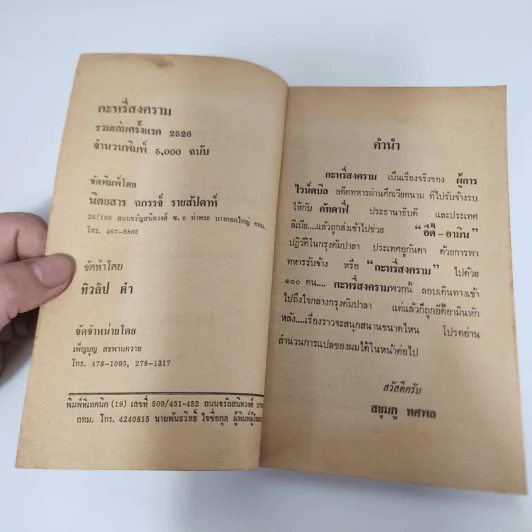 กะหรี่สงคราม
รวมเล่มครั้งแรก 2526
จำนวนพิมพ์ 5,000 ฉบับ
จัดพิมพ์โดย
นิตยสาร ฉกรรจ์ รายสัปดาห์
26/105 ถนนจรัญสนิทวงศ์ ซ. 6 ท่าพระ บางกอกใหญ่ กทม.
โทร. 467-5862
จัดทำโดย
ทิวลิป ดำ
จัดจำหน่ายโดย
เพ็ญบุญ สะพานควาย
โทร. 478-1095, 278-1317
พิมพ์ที่เทคนิค (19) เลขที่ 509/451-452 ถนนจรัลสนิทวงศ์
กทม. โทร. 4240815 นายพันธวิทธิ์ ใจซื่อกุล ผู้พิมพ์ผู้โฆษณา
คำนำ
กะหรี่สงคราม เป็นเรื่องจริงของ ผู้การ
ไรน์ดบิล อดีตทหารผ่านศึกเวียดนาม ที่ไปรับจ้างรบ
ให้กับ คัทดาฟี่ ประธานาธิบดี และประเทศ
ลิเบีย...แล้วถูกส่งเข้าไปช่วย "อีดี้-อามิน"
ปฏิวัติในกรุงคัมปาลา ประเทศอูกันดา ด้วยการพา
ทหารรับจ้าง หรือ "กะหรี่สงคราม" ไปด้วย
๑๐๐ คน.... กะหรี่สงครามพวกนี้ ลอบเดินทางเข้า
ไปถึงใจกลางกรุงคัมปาลา แต่แล้วก็ถูกอีดี้อามินหัก
หลัง....เรื่องราวจะสนุกสนานขนาดไหน โปรดอ่าน
สำนวนการแปลของผมได้ในหน้าต่อไป
สวัสดีครับ
สยุมภู ทศพล